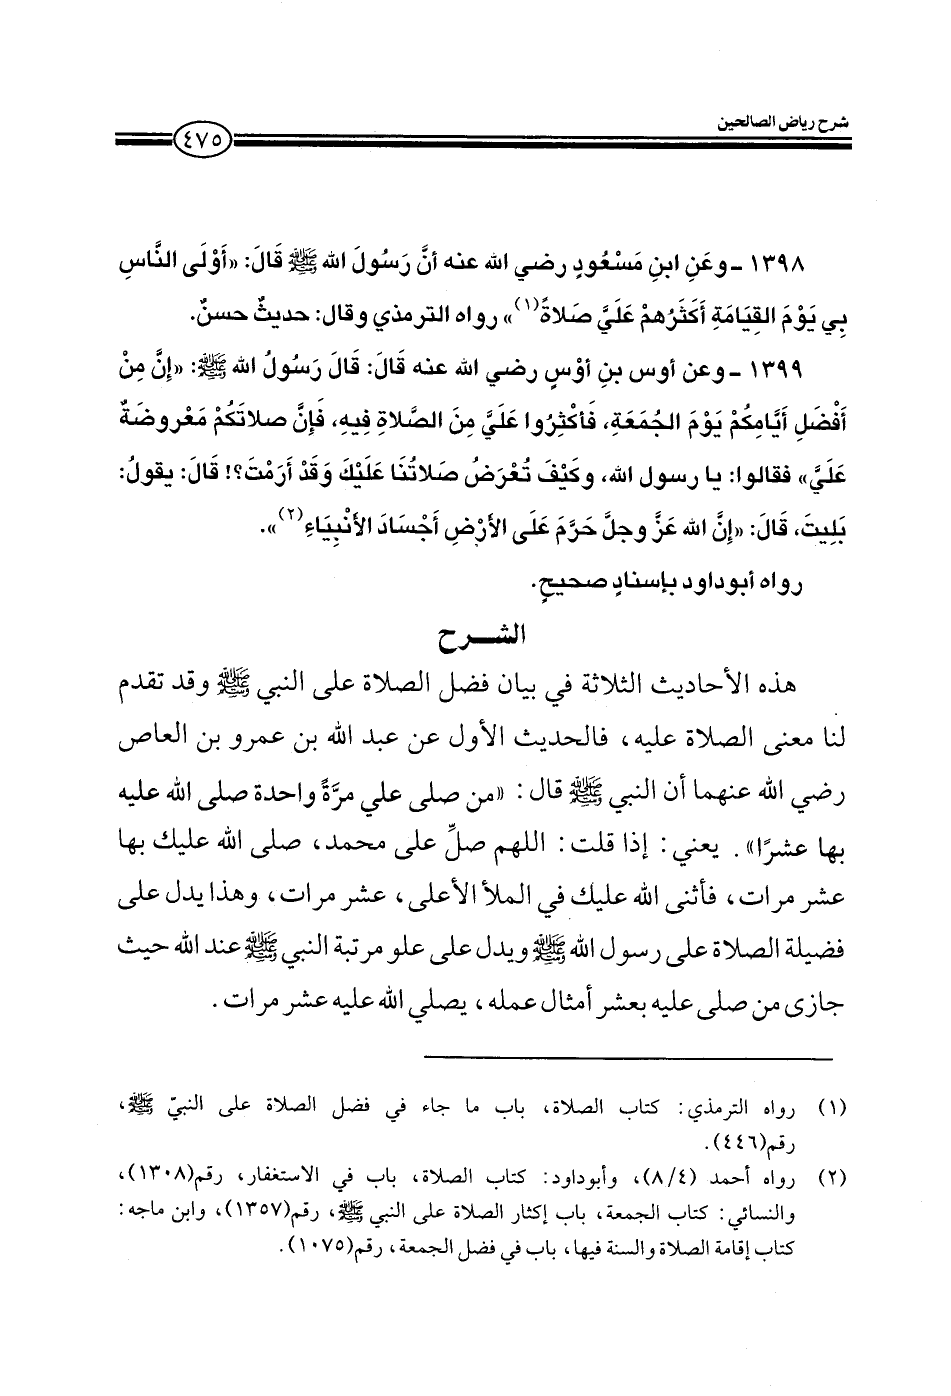 شرح رياض الصالحين
٤٧٥
١٣٩٨ ـ وعَنِ ابنِ مَسْعُودٍ رضي الله عنه أنَّ رَسُولَ الله ﷺ قَالَ: «أَوْلَى النَّاسِ
بِي يَوْمَ القِيَامَةِ أَكثَرُهمْ عَلَيَّ صَلاةً(١)» رواه الترمذي وقال: حديثٌ حسنٌ.
١٣٩٩ ـ وعن أوس بنِ أوْسٍ رضي الله عنه قَالَ: قَالَ رَسُولُ الله ﷺ: «إنَّ مِنْ
أفْضَلِ أيَّامِكُمْ يَوْمَ الجُمَعَةِ، فَأكثِرُوا عَلَيَّ مِنَ الصَّلاةِ فِيهِ، فَإنَّ صلاتَكُمْ مَعْروضَةٌ
عَلَيَّ» فقالوا: يا رسول الله، وكَيْفَ تُعْرَضُ صَلاتُنَا عَلَيْكَ وَقَدْ أرَمْتَ؟! قَالَ: يقولُ:
بَلِيتَ، قَالَ: «إنَّ الله عَزَّ وجلَّ حَرَّمَ عَلَى الأرْضِ أجْسَادَ الأنْبِيَاءِ(٢)».
رواه أبوداود بإسنادٍ صحيحٍ.
الشـــرح
هذه الأحاديث الثلاثة في بيان فضل الصلاة على النبي ﷺ وقد تقدم
لنا معنى الصلاة عليه، فالحديث الأول عن عبد الله بن عمرو بن العاص
رضي الله عنهما أن النبي ﷺ قال: «من صلى علي مرَّةً واحدة صلى الله عليه
بها عشرًا». يعني: إذا قلت: اللهم صلِّ على محمد، صلى الله عليك بها
عشر مرات، فأثنى الله عليك في الملأ الأعلى، عشر مرات، وهذا يدل على
فضيلة الصلاة على رسول الله ﷺ ويدل على علو مرتبة النبي ﷺ عند الله حيث
جازى من صلى عليه بعشر أمثال عمله، يصلي الله عليه عشر مرات.
(١) رواه الترمذي: كتاب الصلاة، باب ما جاء في فضل الصلاة على النبيّ ﷺ،
رقم(٤٤٦).
(٢) رواه أحمد (٨/٤)، وأبوداود: كتاب الصلاة، باب في الاستغفار، رقم(١٣٠٨)،
والنسائي: كتاب الجمعة، باب إكثار الصلاة على النبي ﷺ، رقم(١٣٥٧)، وابن ماجه:
كتاب إقامة الصلاة والسنة فيها، باب في فضل الجمعة، رقم(١٠٧٥).